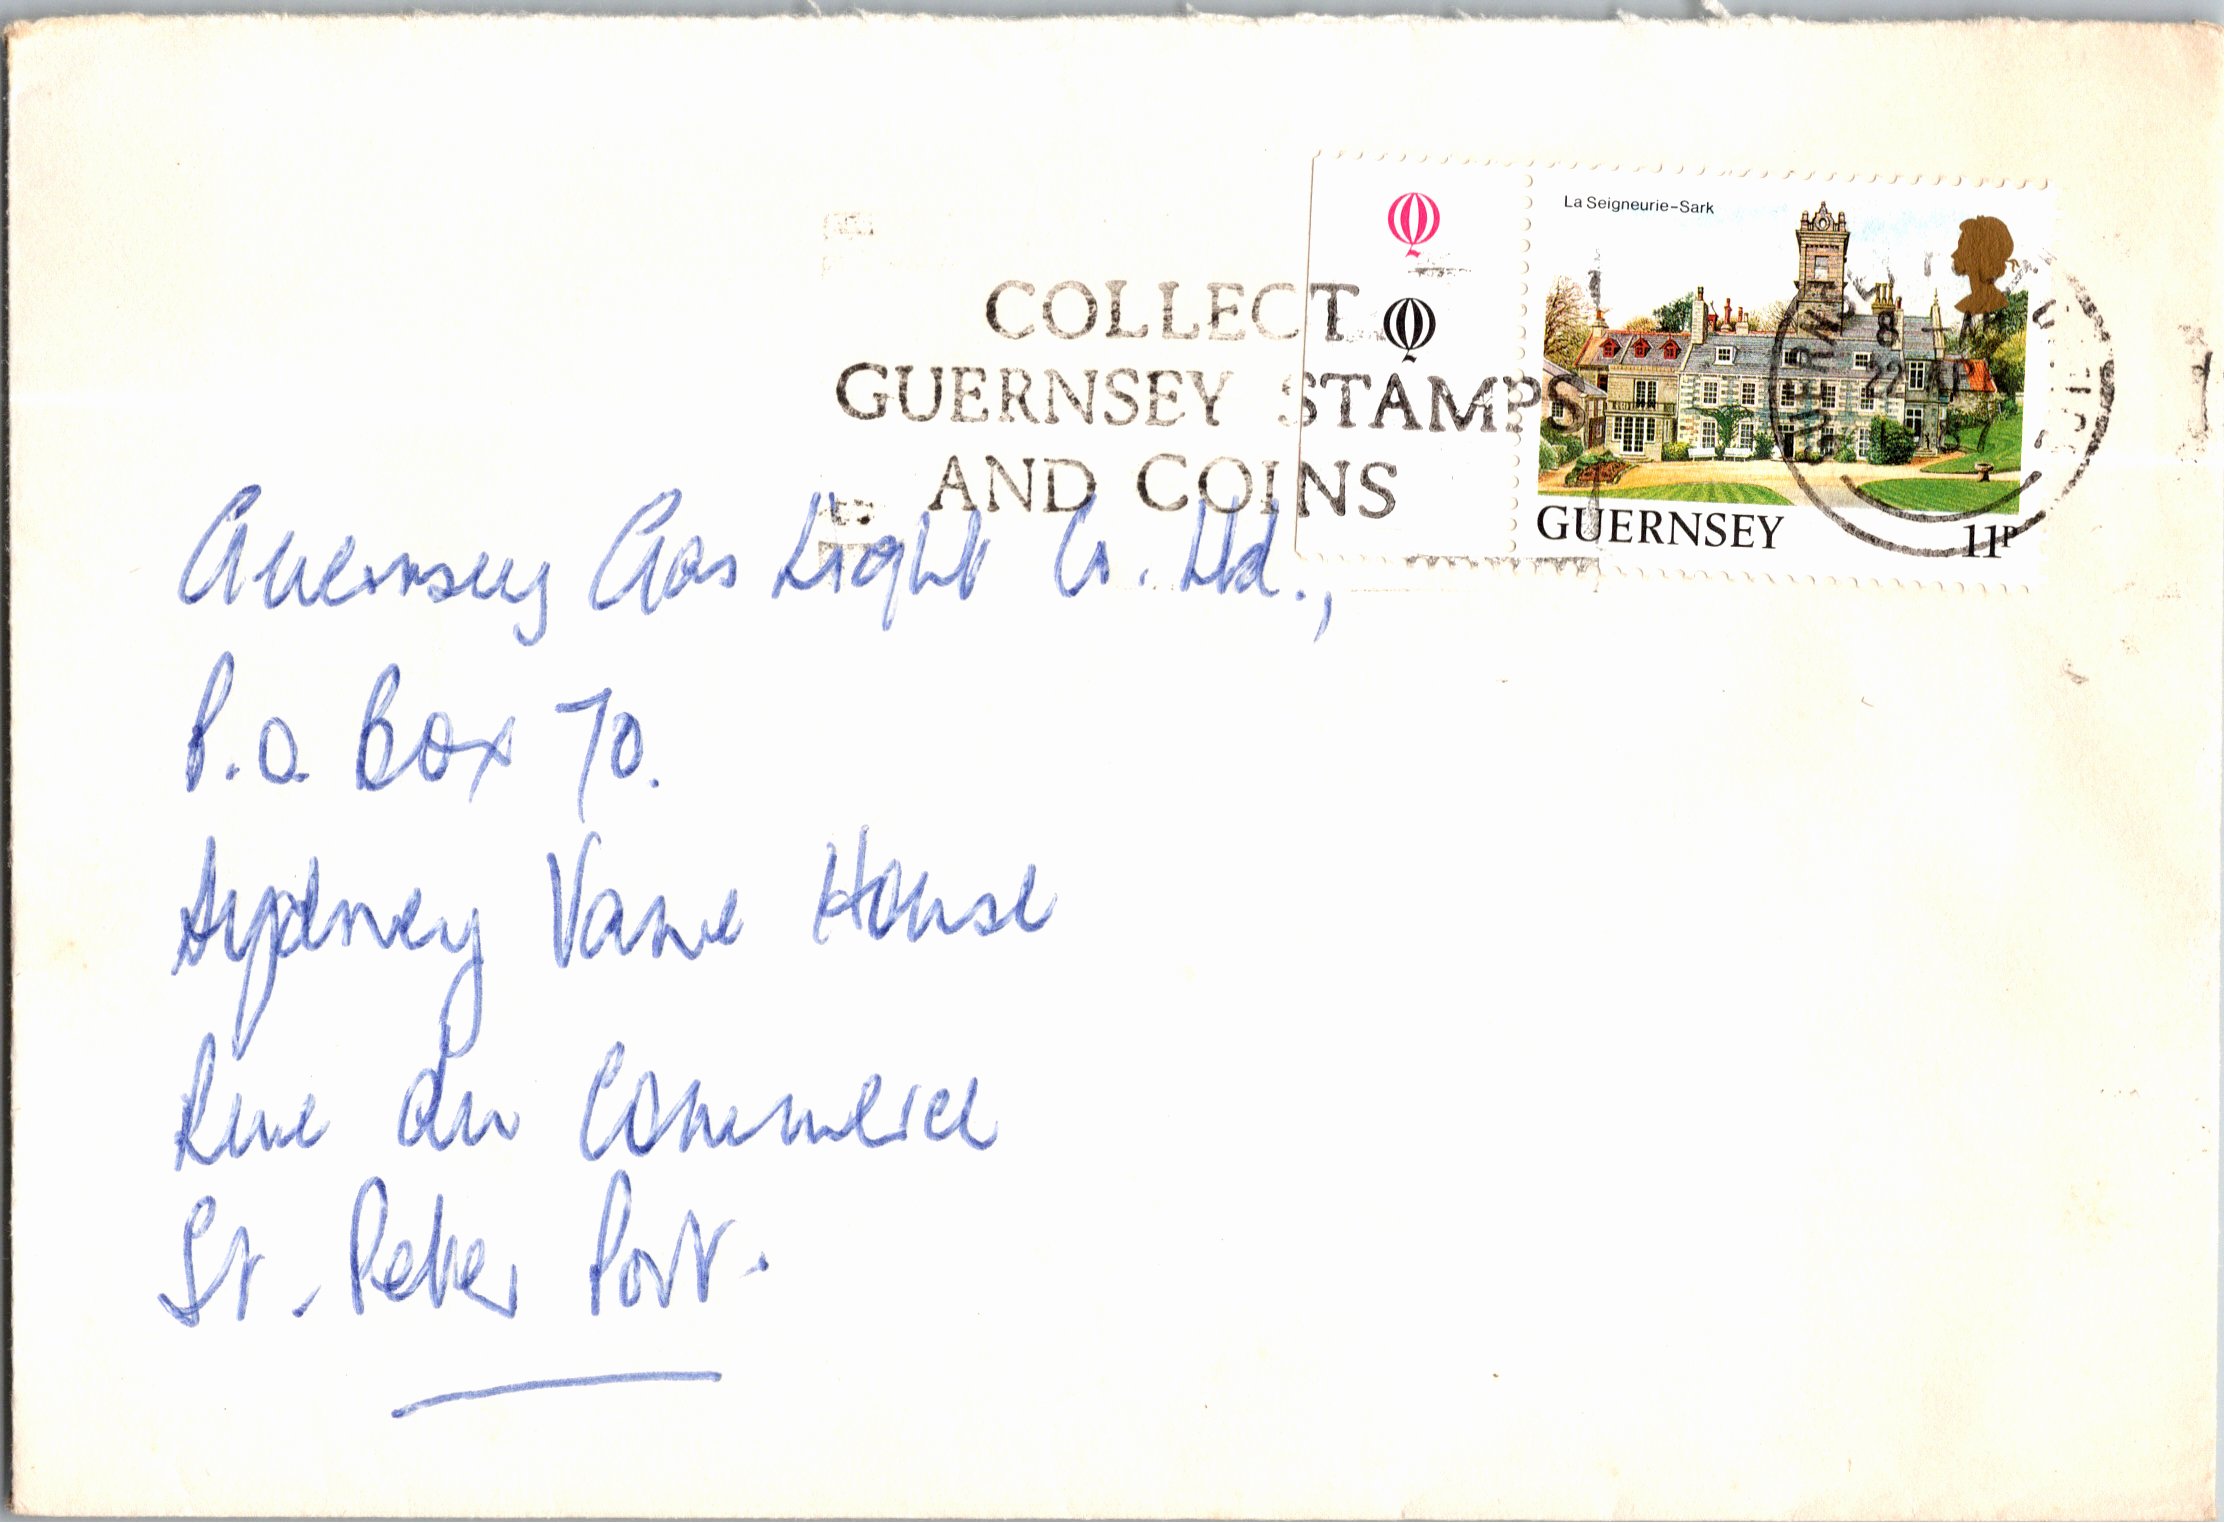 COLLECT
GUERNSEY STAMPS
AND COINS
La Seigneurie-Sark
GUERNSEY
11P
Guernsey Gas Light Co. Ltd.,
P.O. Box 70.
Sydney Vane House
Rue du Commerce
St. Peter Port.